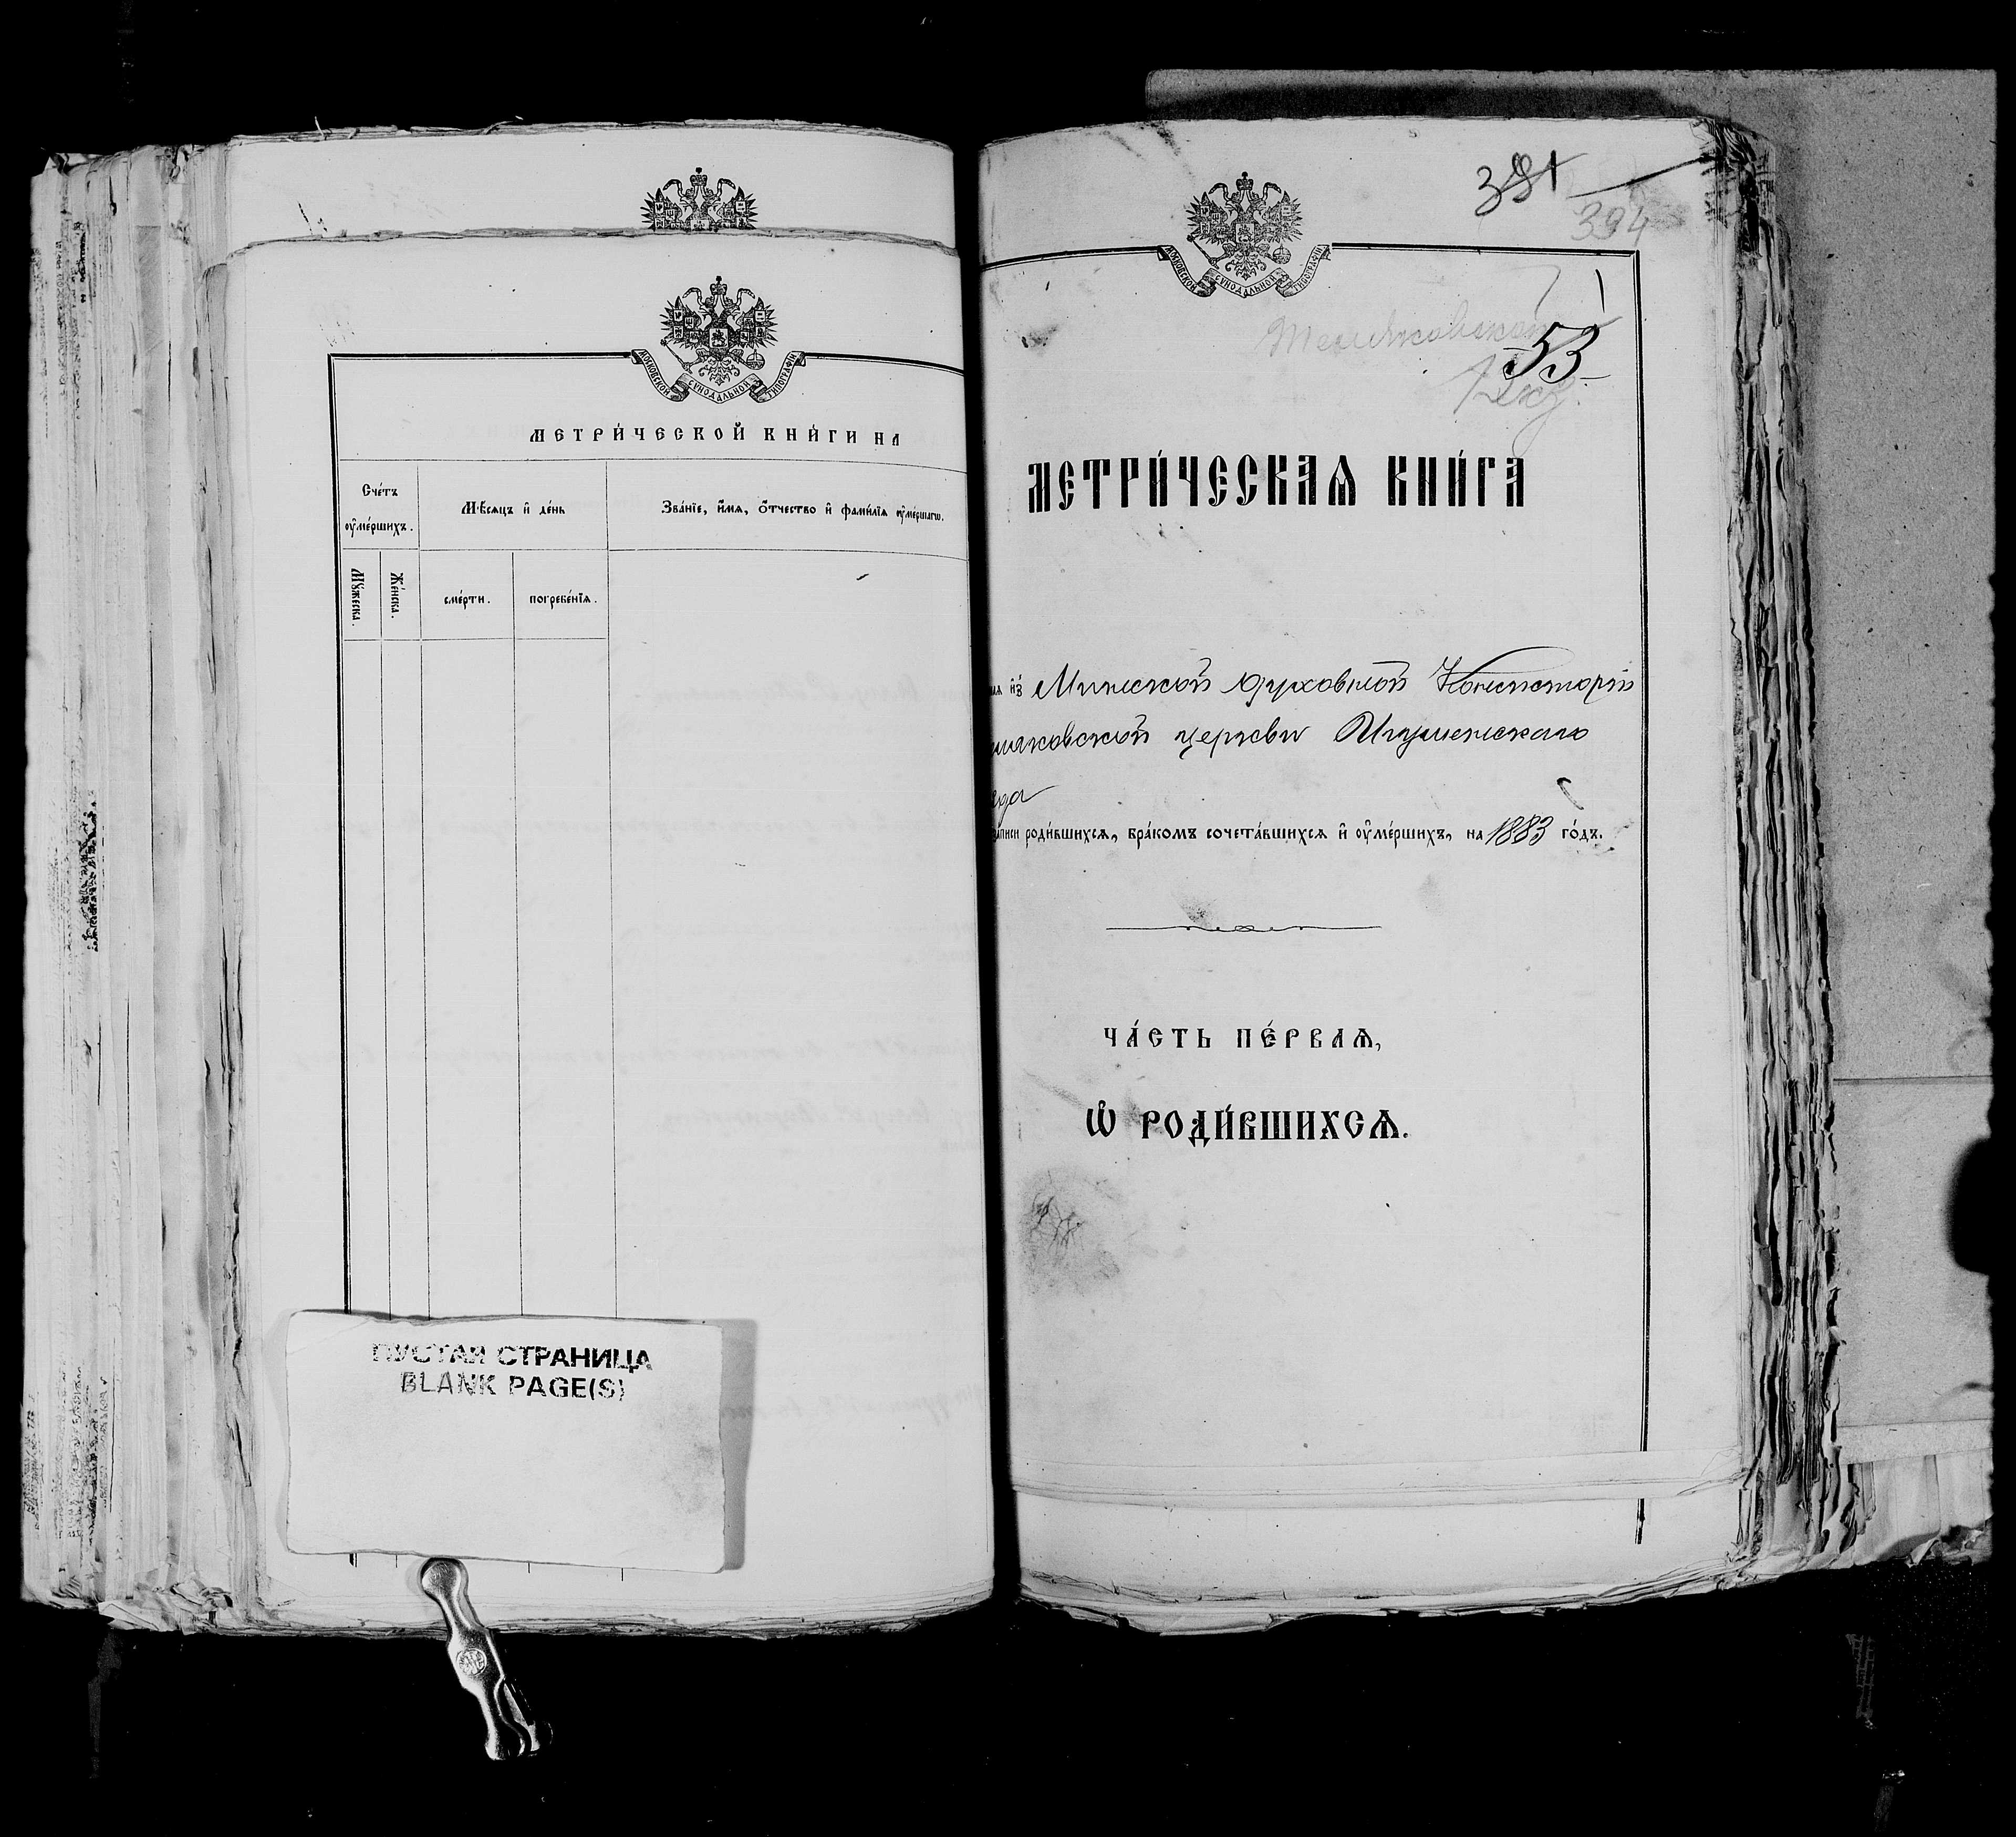 МОСКОВСКОЙ СѴНОДАЛЬНОЙ ТИПОГРАФІИ
МЕТРИ́ЧЕСКОЙ КНИ́ГИ НА
Сче́тъ оу҆ме́ршихъ.
Мѣ́сяцъ и҆ де́нь
Зва́нїе, и҆́мѧ, ѻ҆́тчество и҆ фами́лїѧ оу҆ме́ршагѡ.
Мꙋ́жеска.
Же́нска.
сме́рти.
погребе́нїѧ.
ПУСТАЯ СТРАНИЦА
BLANK PAGE(S)
391
394
МОСКОВСКОЙ СѴНОДАЛЬНОЙ ТИПОГРАФІИ
53
МЕТРИ́ЧЕСКАѦ КНИ́ГА
и҆з̾ Минской Духовной Консисторіи
церкви Игуменскаго
роди́вшихсѧ, бра́комъ сочета́вшихсѧ и҆ оу҆ме́ршихъ, на 1883 го́дъ.
ЧА́СТЬ ПЕ́РВАѦ,
Ѽ РОДИ́ВШИХСѦ.